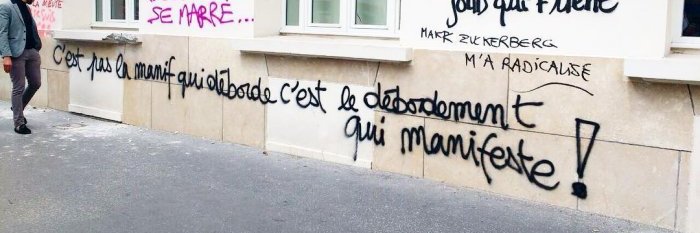 SE MARRE...
MARK ZUCKERBERG
M'A RADICALISE
C'est pas la manif qui déborde c'est le débordement
qui manifeste !